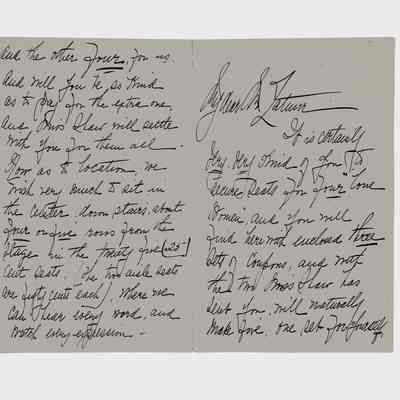 My dear Mr. Latimer
It is certainly
very, very kind of you to
secure seats for four "lone
women", and you will
find herewith enclosed three
sets of coupons, and with
the two Miss Shaw has
sent you, will naturally
make five, one set for yourself,
and the other four, for us.
And will you be so kind
as to pay for the extra one,
and Miss Shaw will settle
with you for them all -
Now as to location, we
wish very much to sit in
the center, down stairs, about
four or five rows from the
stage in the twenty five "25"
cent seats. (The two aisle seats
are fifty cents each). Where we
can hear every word, and
watch every expression -